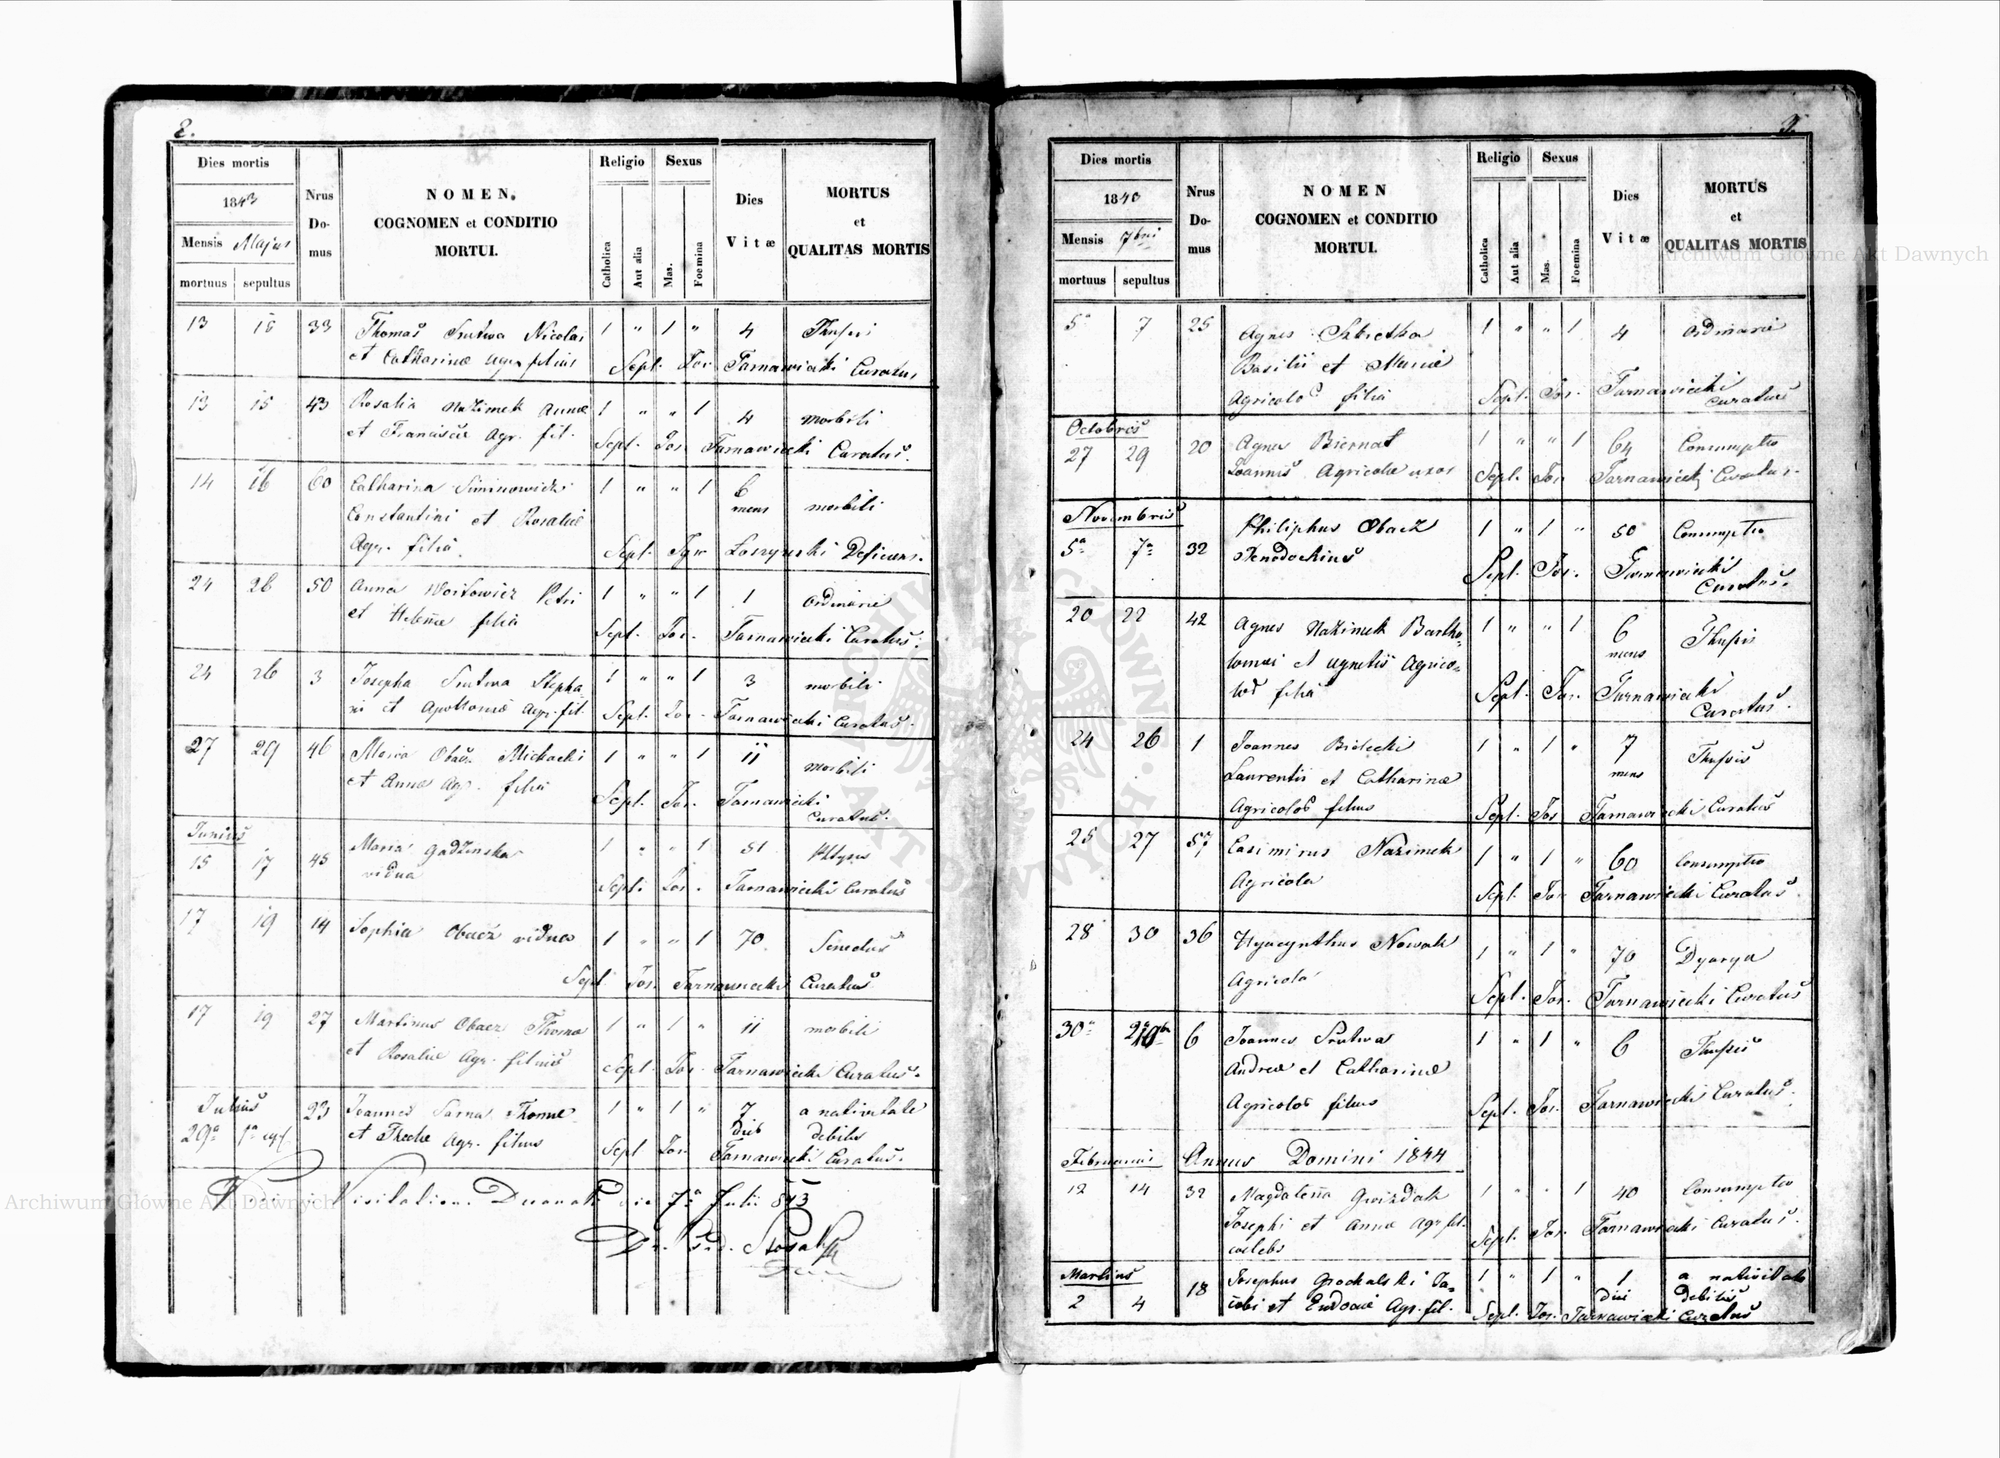 2.
Dies mortis
1843
Mensis Majus
mortuus sepultus
Nrus Do- mus
NOMEN.
COGNOMEN et CONDITIO
MORTUI.
Religio
Catholica
Aut alia
Sexus
Mas.
Foemina
Dies
Vitæ
MORTUS
et
QUALITAS MORTIS
13 15 33 Thomas Srutwa Nicolai 1 " 1 " 4
et Catharinæ Agr. filius Sept. Jos. Tarnawiecki Curatus
13 15 43 Rosalia Nazimek Annæ 1 " " 1 4 morbili
et Francisci Agr. fil. Sept. Jos. Tarnawiecki Curatus.
14 16 60 Catharina Siminowicz 1 " " 1 6
Constantini et Rosaliæ mens morbili
Agr. filia. Sept. Deficiens.
24 26 50 Anna Woitowicz Petri 1 " " 1 1 ordinarie
et Helenæ filia Sept. Jos. Tarnawiecki Curatus.
24 26 3 Josepha Srutwa Stepha- 1 " " 1 3 morbili
ni et Apolloniæ Agr. fil. Sept. Jos. Tarnawiecki Curatus.
27 29 46 Maria Obacz Michaeli 1 " " 1 11 morbili
et Annæ Agr. filia Sept. Jos. Tarnawiecki
Curatus.
Junius
15 17 45 Maria Gadzinska 1 " " 1 51
vidua Sept. Jos. Tarnawiecki Curatus
17 19 14 Sophia Obacz vidua 1 " " 1 70. Senectus
Sept. Jos. Tarnawiecki Curatus
17 19 27 Martinus Obacz Thomæ 1 " 1 " 11 morbili
et Rosaliæ Agr. filius Sept. Jos. Tarnawiecki Curatus.
Julius
29a 23 Joannes Sarna Thomæ 1 " 1 " 7 a nativitate
et Theclæ Agr. filius dies debilis
Sept Jos Tarnawiecki Curatus.
Visitation. Decanat die 7a Julii 843
3.
Dies mortis
1843
Mensis 7bris
mortuus sepultus
Nrus Do- mus
NOMEN
COGNOMEN et CONDITIO
MORTUI.
Religio
Catholica
Aut alia
Sexus
Mas.
Foemina
Dies
Vitæ
MORTUS
et
QUALITAS MORTIS
5a 7 25 Agnes 1 " " 1 4 ordinarie
Basilii et Mariæ
Agricolæ filia Sept. Jos. Tarnawiecki
Curatus
Octobris
27 29 20 Agnes Biernat 1 " " 1 64 Consumptio
Joannis Agricolæ uxor Sept. Jos. Tarnawiecki Curatus.
Novembris
5a 7a 32 Philiphus Obacz 1 " 1 " 50 Consumptio
Sept. Jos. Tarnawiecki
Curatus.
20 22 42 Agnes Nazimek Bartho- 1 " " 1 6
lomæi et Agnetis Agrico- mens
læ filia Sept. Jos. Tarnawiecki
Curatus.
24 26 1 Joannes Bielecki 1 " 1 " 7
Laurentii et Catharinæ mens
Agricolæ filius Sept. Jos Tarnawiecki Curatus
25 27 57 Casimirus Nazimek 1 " 1 " 60 Consumptio
Agricola Sept. Jos Tarnawiecki Curatus.
28 30 36 Hyacynthus Nowak 1 " 1 " 70
Agricola Sept. Jos. Tarnawiecki Curatus
30a 6 Joannes Srutwa 1 " 1 " 6
Andreæ et Catharinæ
Agricolæ filius Sept. Jos. Tarnawiecki Curatus.
Februarius Annus Domini 1844
12 14 32 Magdalena Gwizdak 1 " " 1 40 Consumptio
Josephi et Annæ Agr. fil. Sept. Jos. Tarnawiecki Curatus.
cælebs
Martius
2 4 18 Josephus Grochalski Ja- 1 " 1 " 1 a nativitate
cobi et Eudociæ Agr. fil. dies debilis
Sept. Jos. Tarnawiecki Curatus
Archiwum Główne Akt Dawnych
Archiwum Główne Akt Dawnych
ARCHIWUM GŁÓWNE AKT DAWNYCH